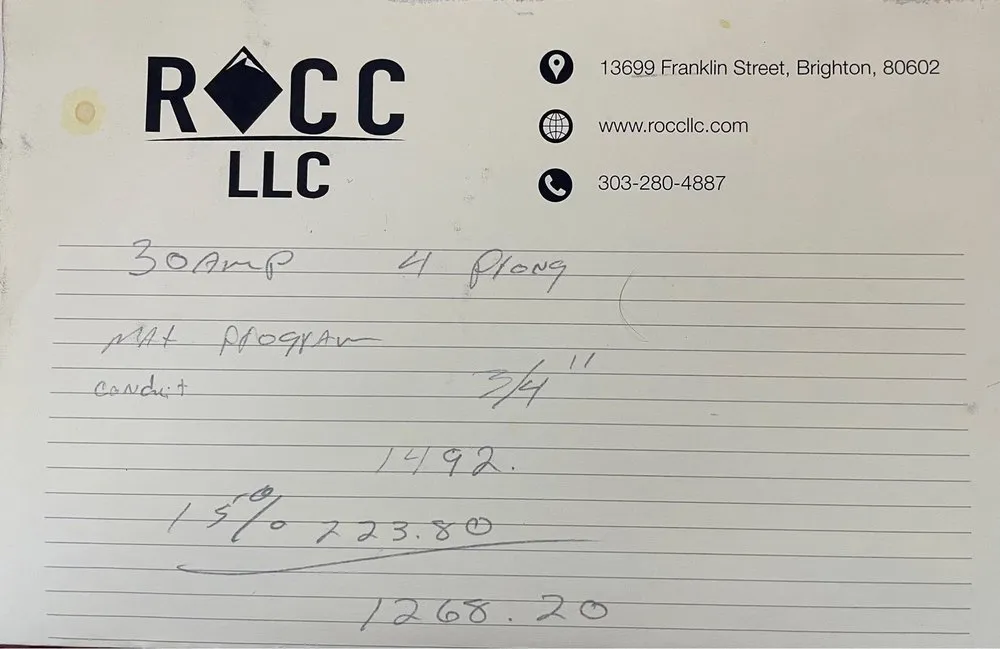 ROCC
LLC
13699 Franklin Street, Brighton, 80602
www.roccllc.com
303-280-4887
30 Amp 4 Prong
MAt program
conduit 3/4"
1492.
15% 223.80
1268.20